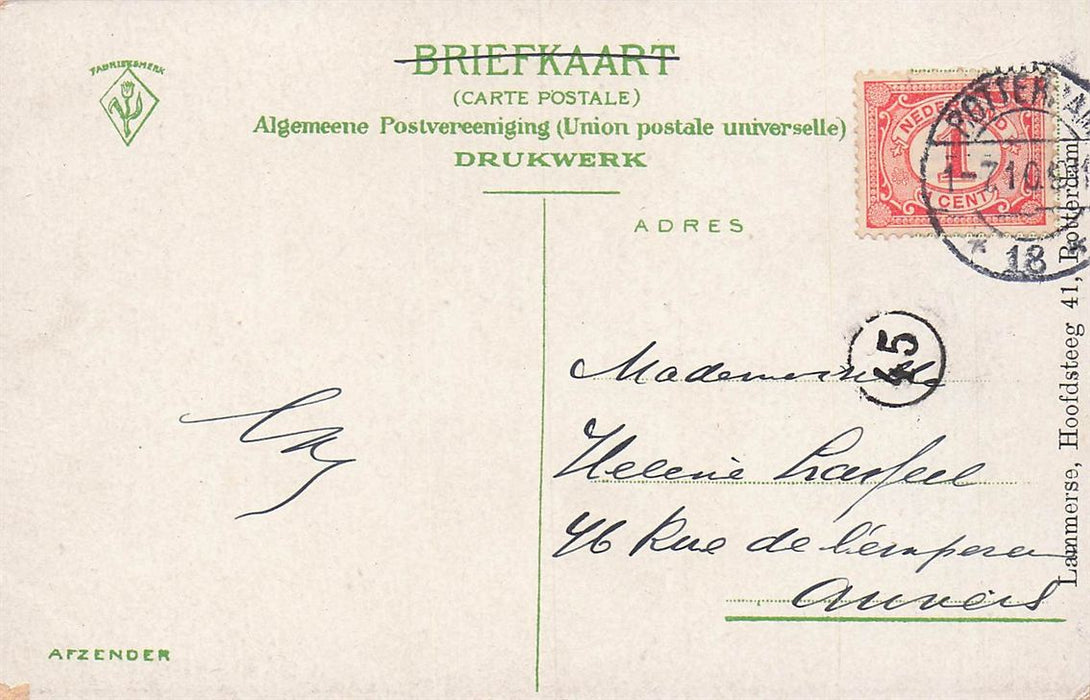 BRIEFKAART
FABRIEKSMERK
(CARTE POSTALE)
Algemeene Postvereeniging (Union postale universelle)
DRUKWERK
1 NEDERLAND
1
CENT
ROTTERDAM
1-7.10.9-1
18
ADRES
45
Mademoiselle
Helene
46 Rue de l'empereur
Anvers
Lammerse, Hoofdsteeg 41, Rotterdam
AFZENDER